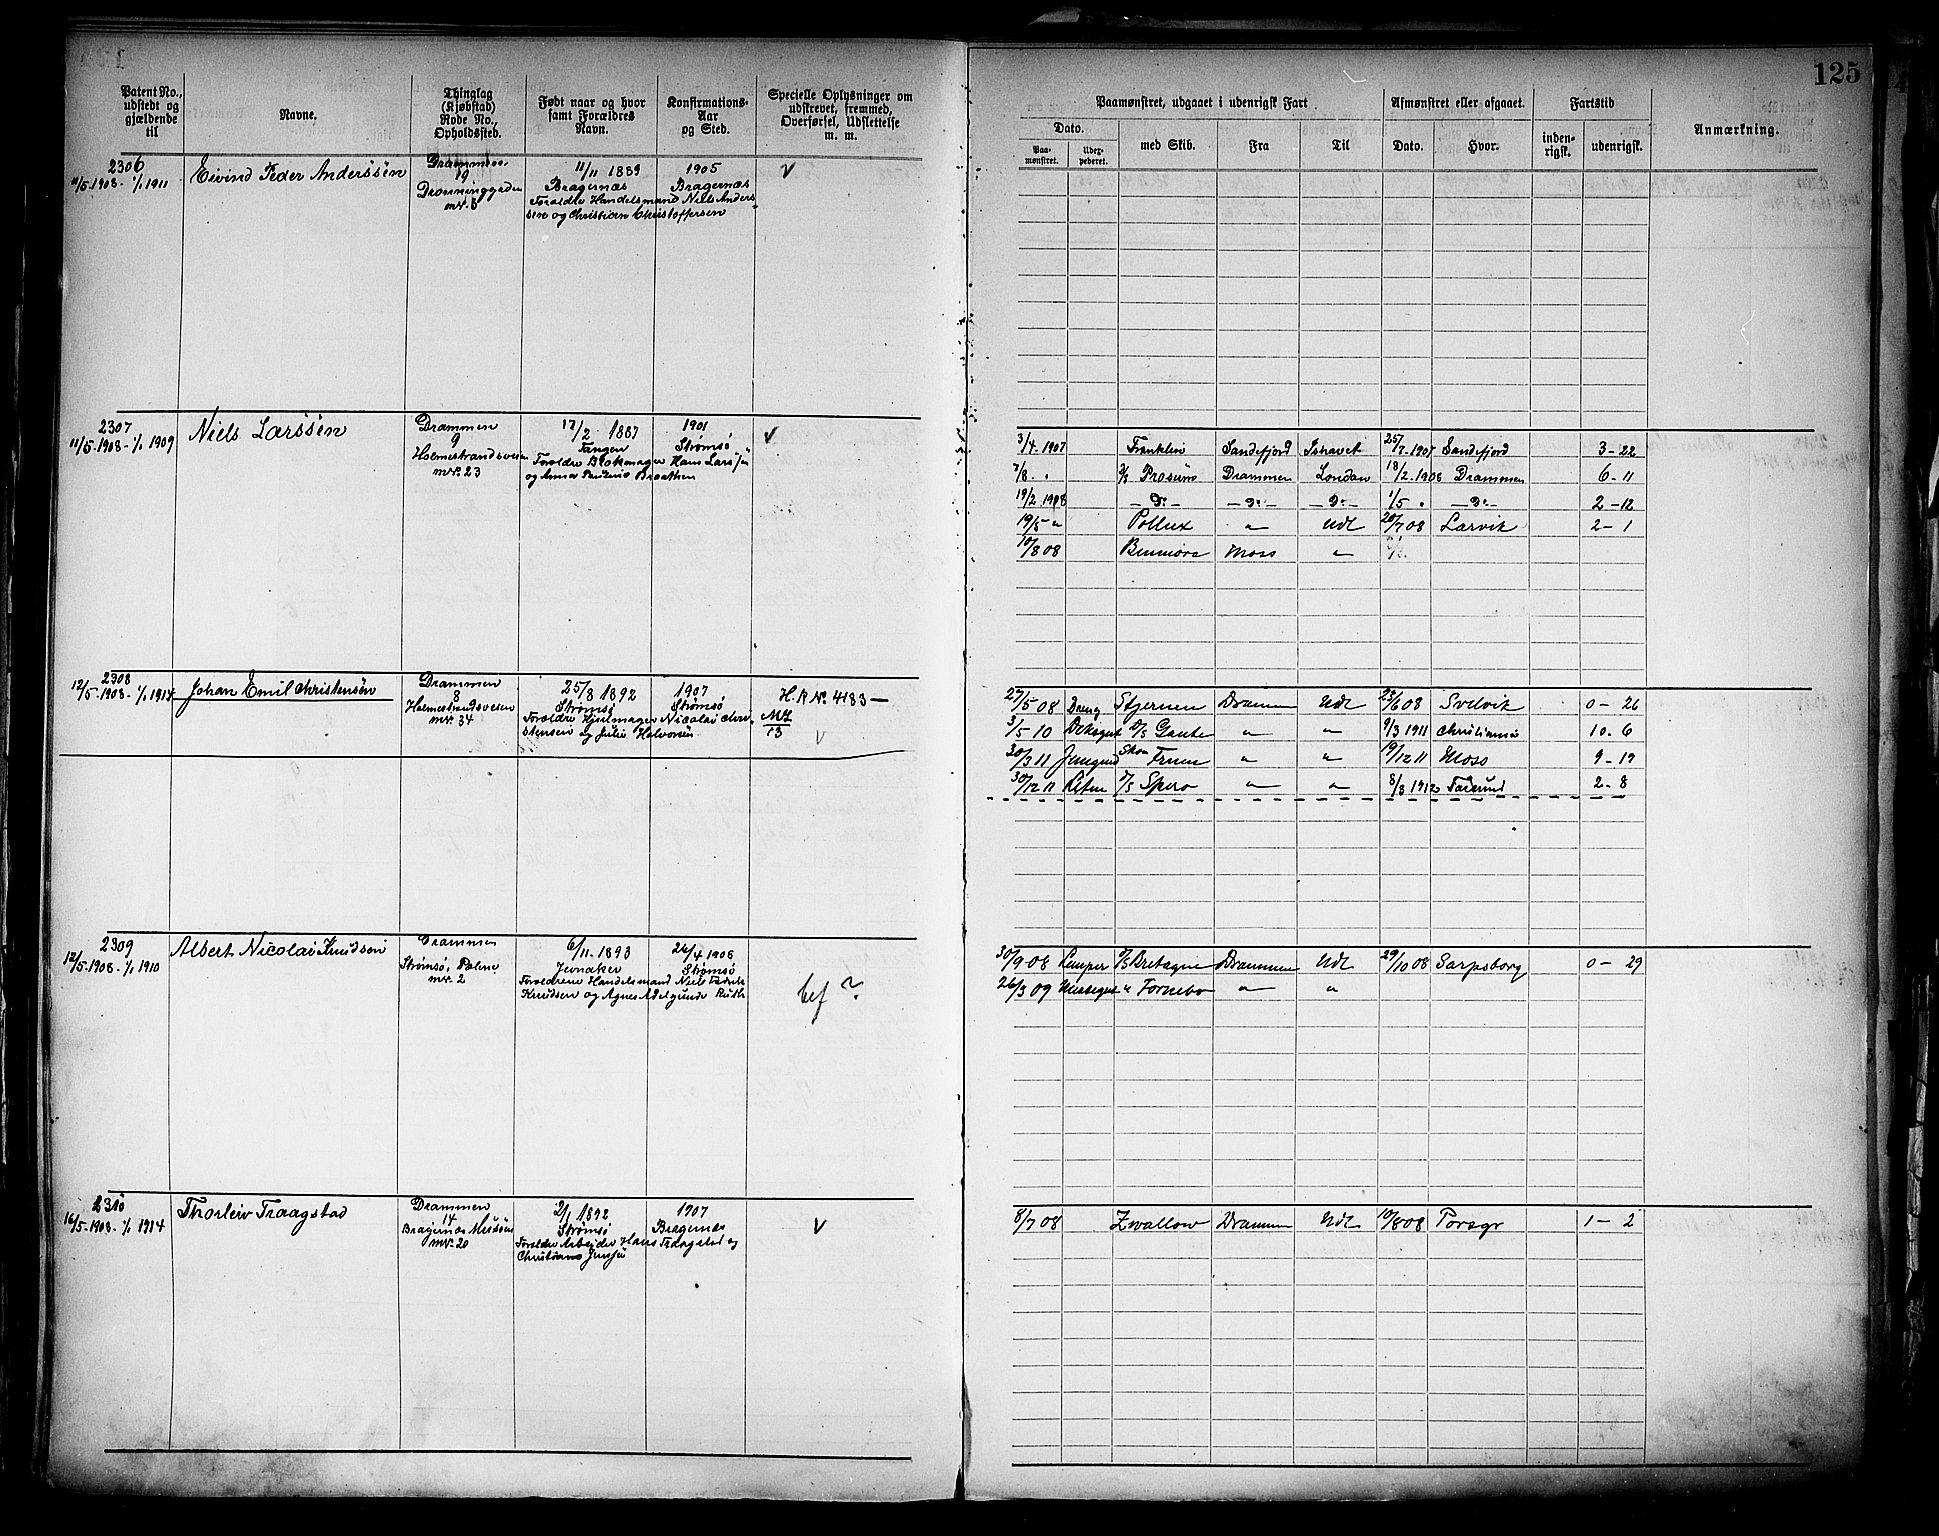 125
Patent No., udstedt og gjældende til
Navne.
Thinglag (Kjøbstad) Rode No., Opholdssted.
Født naar og hvor samt Forældres Navn.
Konfirmations-Aar og Sted.
Specielle Oplysninger om udskrevet, fremmed, Overførsel, Udslettelse m. m.
Paamønstret, udgaaet i udenrigsk Fart
Afmønstret eller afgaaet.
Fartstid
Anmærkning.
Dato.
Paa-mønstret.
med Skib.
Fra
Til
Dato.
Hvor.
inden-rigsk.
udenrigsk.
2306
11/5 1908 - 1/1 1911
Eivind Peder Anderssen
Drammen
19
Dronninggaden
nr. 5
11/11 1889
Bragernæs
Foreldre Handelsmand Niels Anders
sen og Christian Christoffersen
1905
Bragernæs
v
2307
11/5 1908 - 1/1 1909
Niels Larssen
Drammen
9
Holmestrandsveien
nr. 23
17/2 1887
Tangen
Foreldre Blokmager Hans Lars
og Anna Braathen
1901
Strømsø
v
3/4 1907 Franklin Sandefjord Ishavet 25/7 1907 Sandefjord 3-22
7/8 " Drammen London 18/2 1908 Drammen 6-11
19/2 1908 - Do - - Do - - Do - 1/5 " - Do - 2-12
19/5 " Pollux " Udl 20/7 08 Larvik 2-1
10/8 08 Moss "
2308
12/5 1908 - 1/1 1914
Johan Emil Christensen
Drammen
8
Holmestrandsveien
nr. 34
25/8 1892
Strømsø
Foreldre Hjulmager Nicolai Chri
stensen og Julie Halvorsen
1907
Strømsø
H.R No. 4183 -
13
v
27/5 08 Dreng Stjernen Drammen Udl 23/6 08 Svelvik 0-26
3/5 10 D/S Gaute " " 9/3 1911 10-6
30/3 11 " " 19/12 11 Moss 9-19
30/12 11 D/S Spero " " 8/3 1912 2-8
2309
12/5 1908 - 1/1 1910
Albert Nicolai Knudsen
Drammen
Strømsø,
nr. 2
6/11 1893
Jevnaker
Foreldrene Handelsmand Niels
Knudsen og Agnes Adelgunde Ruth
26/4 1908
Strømsø
bef ?
30/9 08 Lemper D/S Bretagne Drammen Udl 29/10 08 Sarpsborg 0-29
26/3 09 " Fornebo " "
2310
16/5 1908 - 1/1 1914
Thorleiv Traagstad
Drammen
14
Bragernæs
nr. 20
2/1 1892
Strømsø
Foreldre Arbeider Hans Traagstad og
Christiane Jensen
1907
Bragernæs
v
8/7 08 Zwallow Drammen Udl 10/8 08 Porsgr 1-2